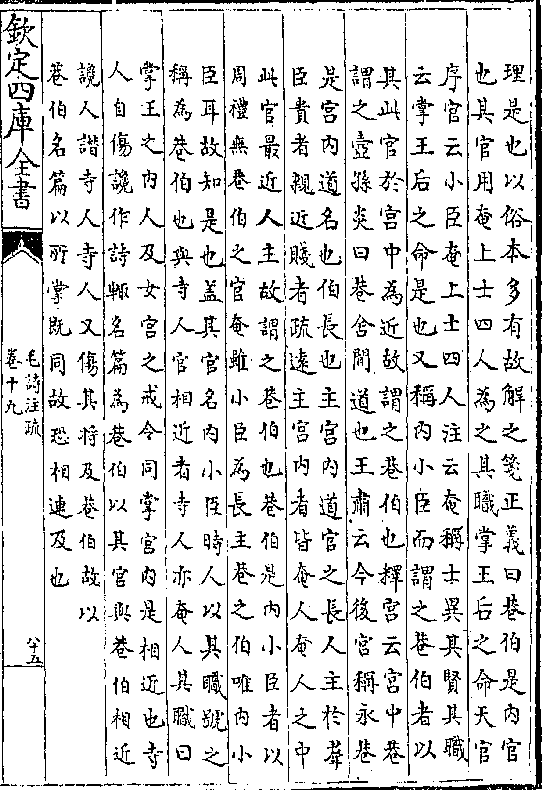 理是也以俗本多有故解之箋正義曰巷伯是内官
也其官用奄上士四人為之其職掌王后之命天官
序官云小臣奄上士四人注云奄稱士異其賢其職
云掌王后之命是也又稱内小臣而謂之巷伯者以
其此官於宮中為近故謂之巷伯也釋宮云宮中巷
謂之壼孫炎曰巷舍間道也王肅云今後宮稱永巷
是宮内道名也伯長也主宮内道官之長人主於羣
臣貴者親近賤者疏遠主宮内者皆奄人奄人之中
此官最近人主故謂之巷伯也巷伯是内小臣者以
周禮無巷伯之官奄雖小臣為長主巷之伯唯内小
臣耳故知是也蓋其官名内小臣時人以其職號之
稱為巷伯也與寺人官相近者寺人亦奄人其職曰
掌王之内人及女宮之戒令同掌宮内是相近也寺
人自傷讒作詩輙名篇為巷伯以其官與巷伯相近
讒人譖寺人寺人又傷其將及巷伯故以
巷伯名篇以所掌既同故恐相連及也
欽定四庫全書
毛詩注疏
卷十九
八十五